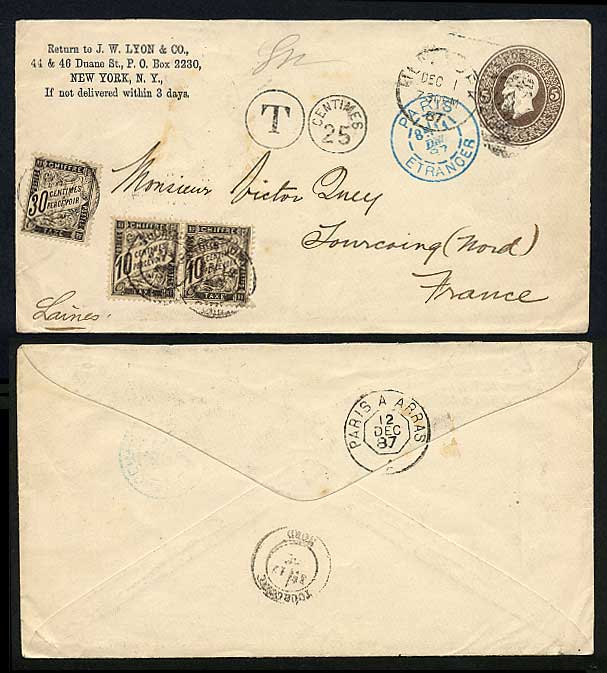 Return to J. W. LYON & CO.,
44 & 46 Duane St., P. O. Box 2230,
NEW YORK, N. Y.,
If not delivered within 3 days.
DEC 1
87
5 5
T
CENTIMES
25
PARIS
DEC
87
ETRANGER
CHIFFRE
30
CENTIMES
PERCEVOIR
TAXE
CHIFFRE CHIFFRE
10 10
CENTIMES
TAXE TAXE
Monsieur Victor
Tourcoing (Nord)
France
Laines.
PARIS A ARRAS
12
DEC
87
NORD